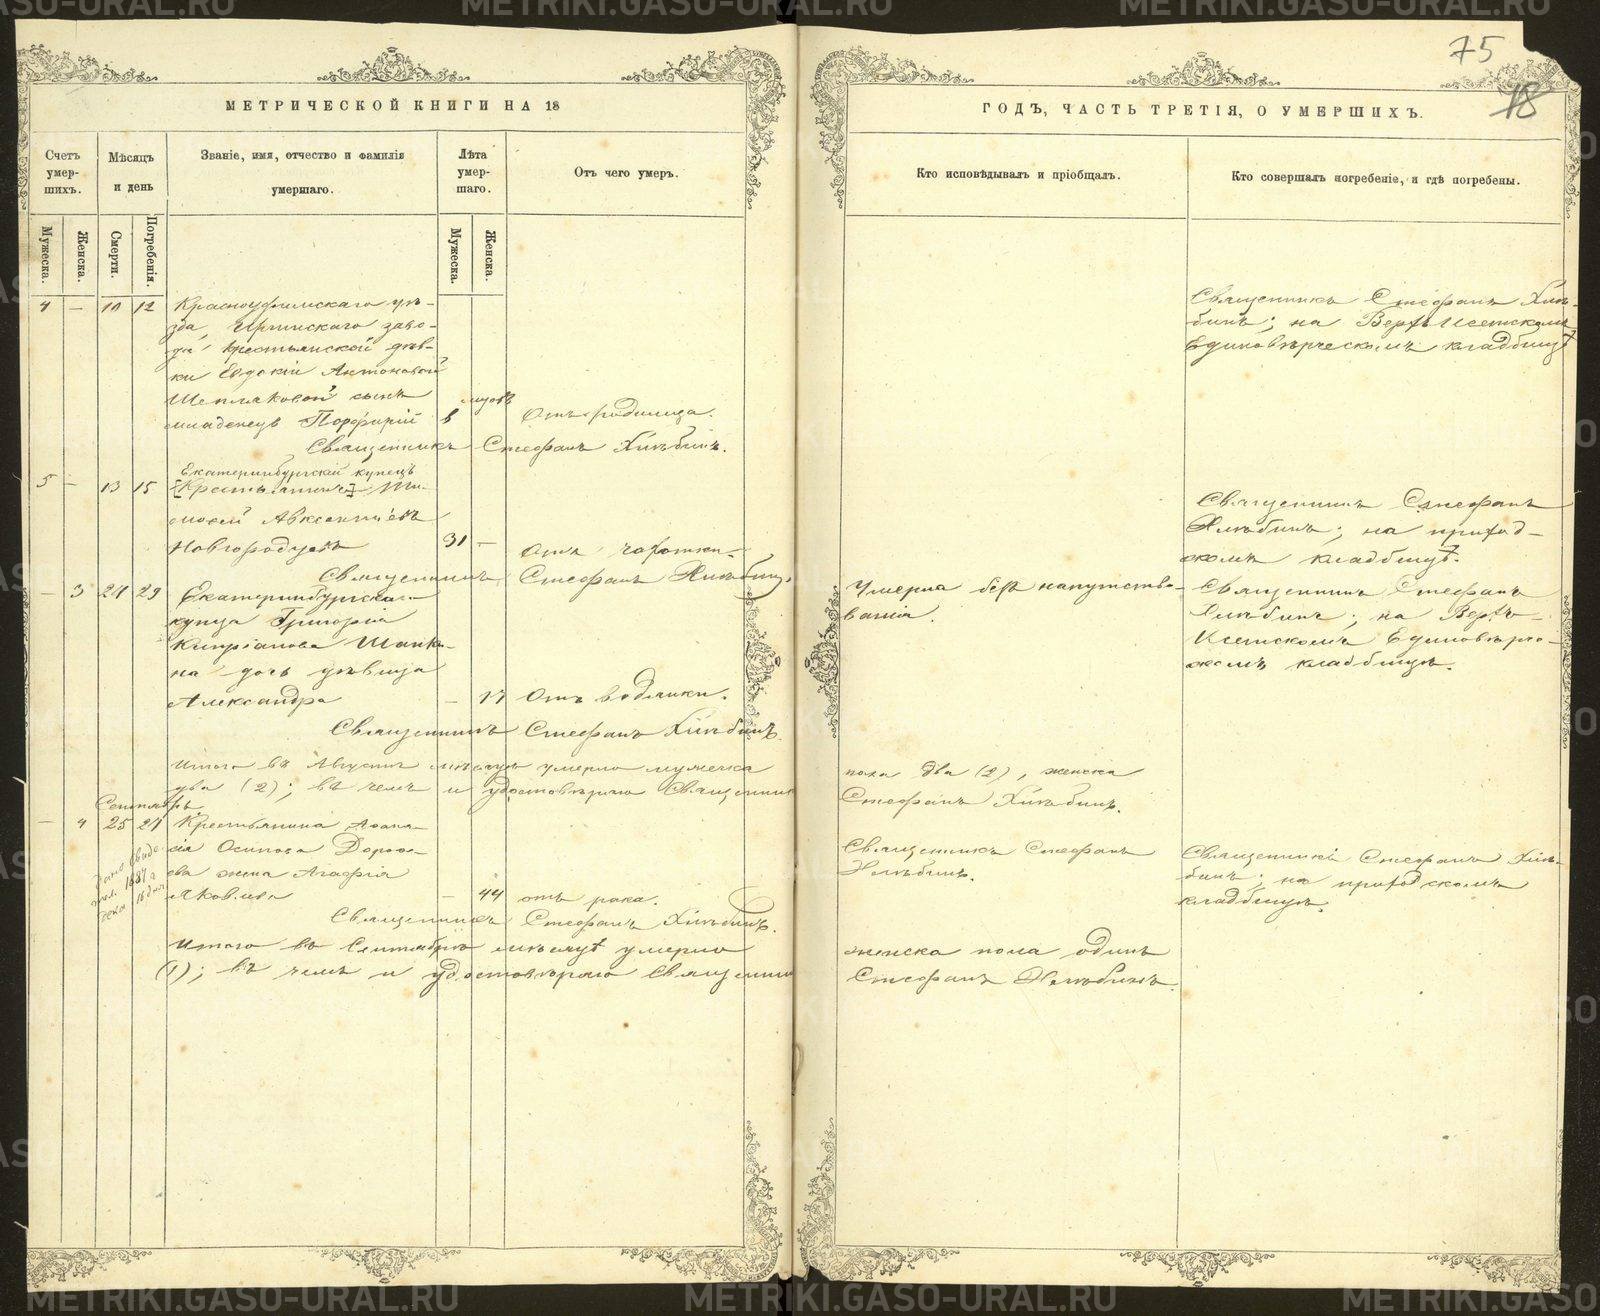 METRIKI.GASO-URAL.RU
75
18
МЕТРИЧЕСКОЙ КНИГИ НА 18
ГОДЪ, ЧАСТЬ ТРЕТІЯ, О УМЕРШИХЪ.
Счетъ умер-шихъ.
Мѣсяцъ и день
Званіе, имя, отчество и фамилія умершаго.
Лѣта умер-шаго.
Отъ чего умеръ.
Кто исповѣдывалъ и пріобщалъ.
Кто совершалъ погребеніе, и гдѣ погребены.
Мужеска.
Женска.
Смерти.
Погребенія.
Мужеска.
Женска.
4 — 10 12 Красноуфимскаго уѣ-
зда, Иргинскаго заво-
да крестьянской дѣв-
ки Евдокіи Антоновой
сынъ
младенецъ Порфирій
Отъ родимца.
Священникъ Стефанъ Хлѣбинъ.
Священникъ Стефанъ Хлѣ-
бинъ; на Верхъ Исетскомъ
Единовѣрческомъ кладбищѣ
5 — 13 15
Екатеринбургскій купецъ
[Крестьянинъ] Ти-
моѳей Авксентіевъ
Новгородцевъ 31 —
Отъ чахотки
Священникъ Стефанъ Хлѣбинъ.
Священникъ Стефанъ
Хлѣбинъ; на приход-
скомъ кладбищѣ.
— 3 27 29 Екатеринбургскаго
купца Григорія
Кипріанова
на дочь дѣвица
Александра — 17 Отъ водянки.
Священникъ Стефанъ Хлѣбинъ.
Умерла безъ напутство-
ванія.
Священникъ Стефанъ
Хлѣбинъ; на Верхъ-
Исетскомъ Единовѣрче-
скомъ кладбищѣ.
Итого въ Августѣ мѣсяцѣ умерло мужеска
пола два (2), женска
два (2); въ чемъ и удостовѣряю Священник
Стефанъ Хлѣбинъ.
Сентябрь
— 4 25 27 Крестьянина Аѳана-
сія Осипова Дороѳе-
ева жена Агафія
Яковлева — 44 отъ рака.
Священникъ Стефанъ Хлѣбинъ.
Священникъ Стефанъ
Хлѣбинъ.
Священникъ Стефанъ Хлѣ-
бинъ; на приходскомъ
кладбищѣ.
Итого въ Сентябрѣ мѣсяцѣ умерло
женска пола одинъ
(1); въ чемъ и удостовѣряю Священник
Стефанъ Хлѣбинъ.